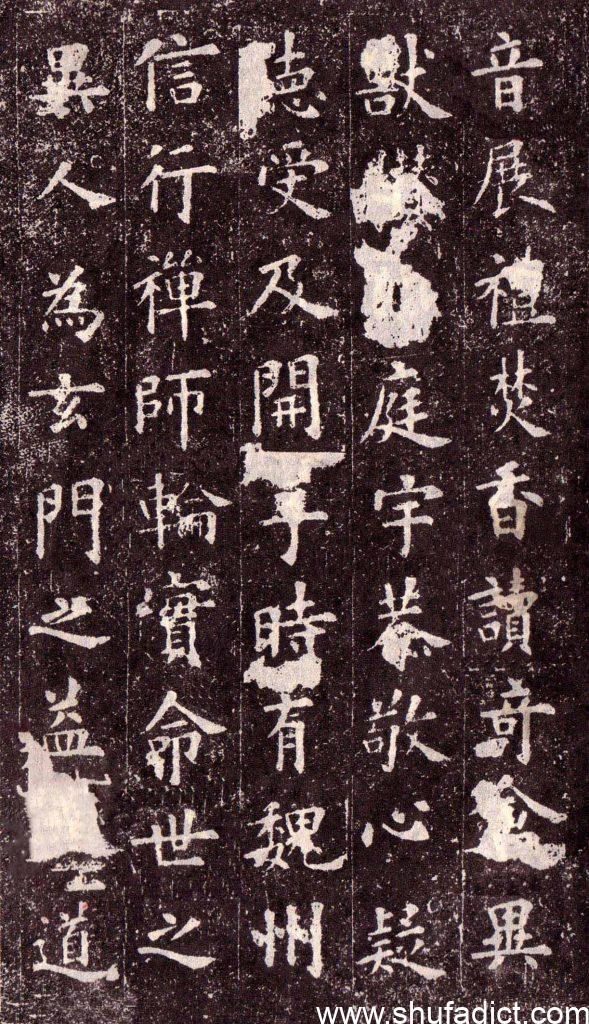 音展禮焚香讀奇禽異
獸庭宇恭敬心疑
聽受及開于時有魏州
信行禪師輪實命世之
異人為玄門之益道
www.shufadict.com